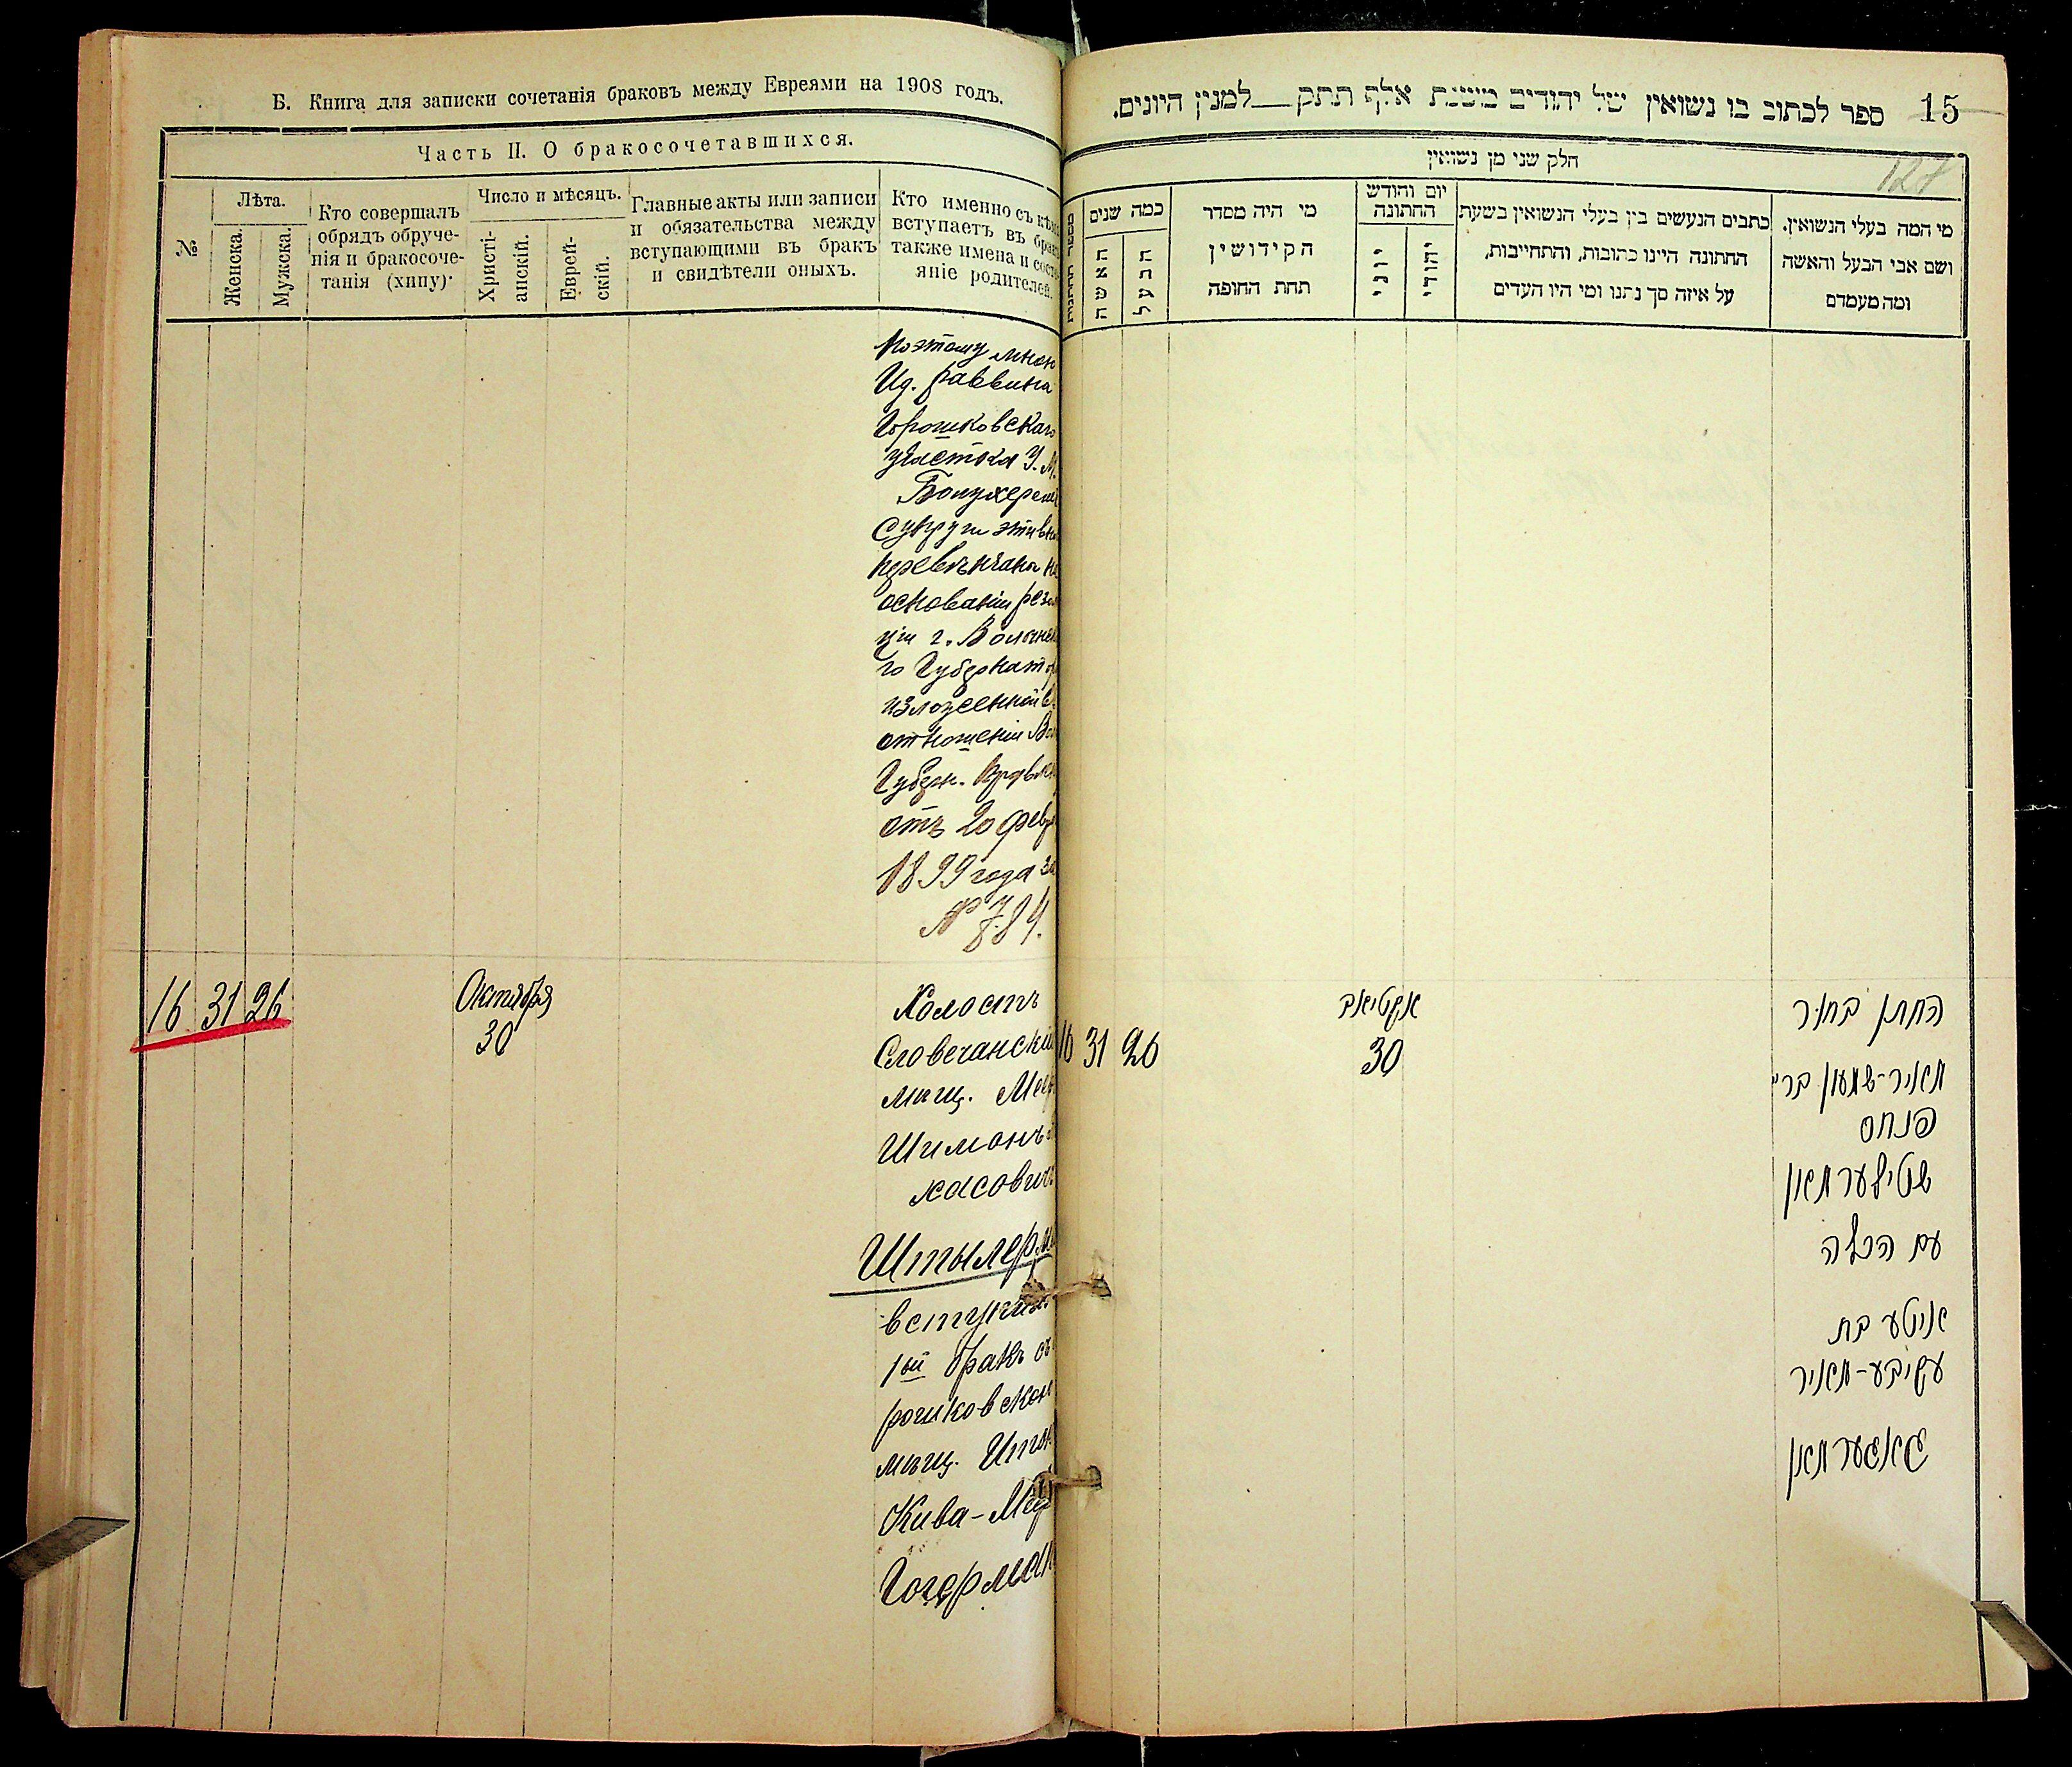 Б. Книга для записки сочетанія браковъ между Евреями на 1908 годъ.
Часть II. О бракосочетавшихся.
№
Лѣта.
Женска.
Мужска.
Кто совершалъ
обрядъ обруче-
нія и бракосоче-
танія (хипу)
Число и мѣсяцъ.
Христі-
анскій.
Еврей-
скій.
Главные акты или записи
и обязательства между
вступающими въ бракъ
и свидѣтели оныхъ.
Кто именно съ
вступаетъ въ
также имена и
яніе родителей.
поэтому
Ид. раввина
Горошковскаго
участка У. М.
супруги эти
перевѣнчаны
основаніи
ціи г.
го Губернатор
изложенной
отношеніи
Губерн.
отъ 20
1899 года за
№ 784.
16 31 26
Октября
30
Холостъ
Словечанскій
мѣщ.
Шимонъ
хасович
Штылерма
вступил
1ый бракъ съ
рошковской
мѣщ.
Кива-Меер
Гогерман
ספר לכתוב בו נשואין של יהודים משנת אלף תתק למנין היונים.
15
127
חלק שני מן נשואין
כמה שנים
האשה
הבעל
מי היה מסדר
הקידושין
תחת החופה
יום וחודש
החתונה
יוני
יהודי
כתבים הנעשים בין בעלי הנשואין בשעת
החתונה היינו כתובות, והתחייבות,
על איזה סך נתנו ומי היו העדים
מי המה בעלי הנשואין.
ושם אבי הבעל והאשה
ומה מעמדם
16 31 26
אקטיאב
30
החתן בחור
מאיר-שמעון ברי
פנחס
שטילערמאן
עם הכלה
איטע בת
עקיבע-מאיר
גאגערמאן